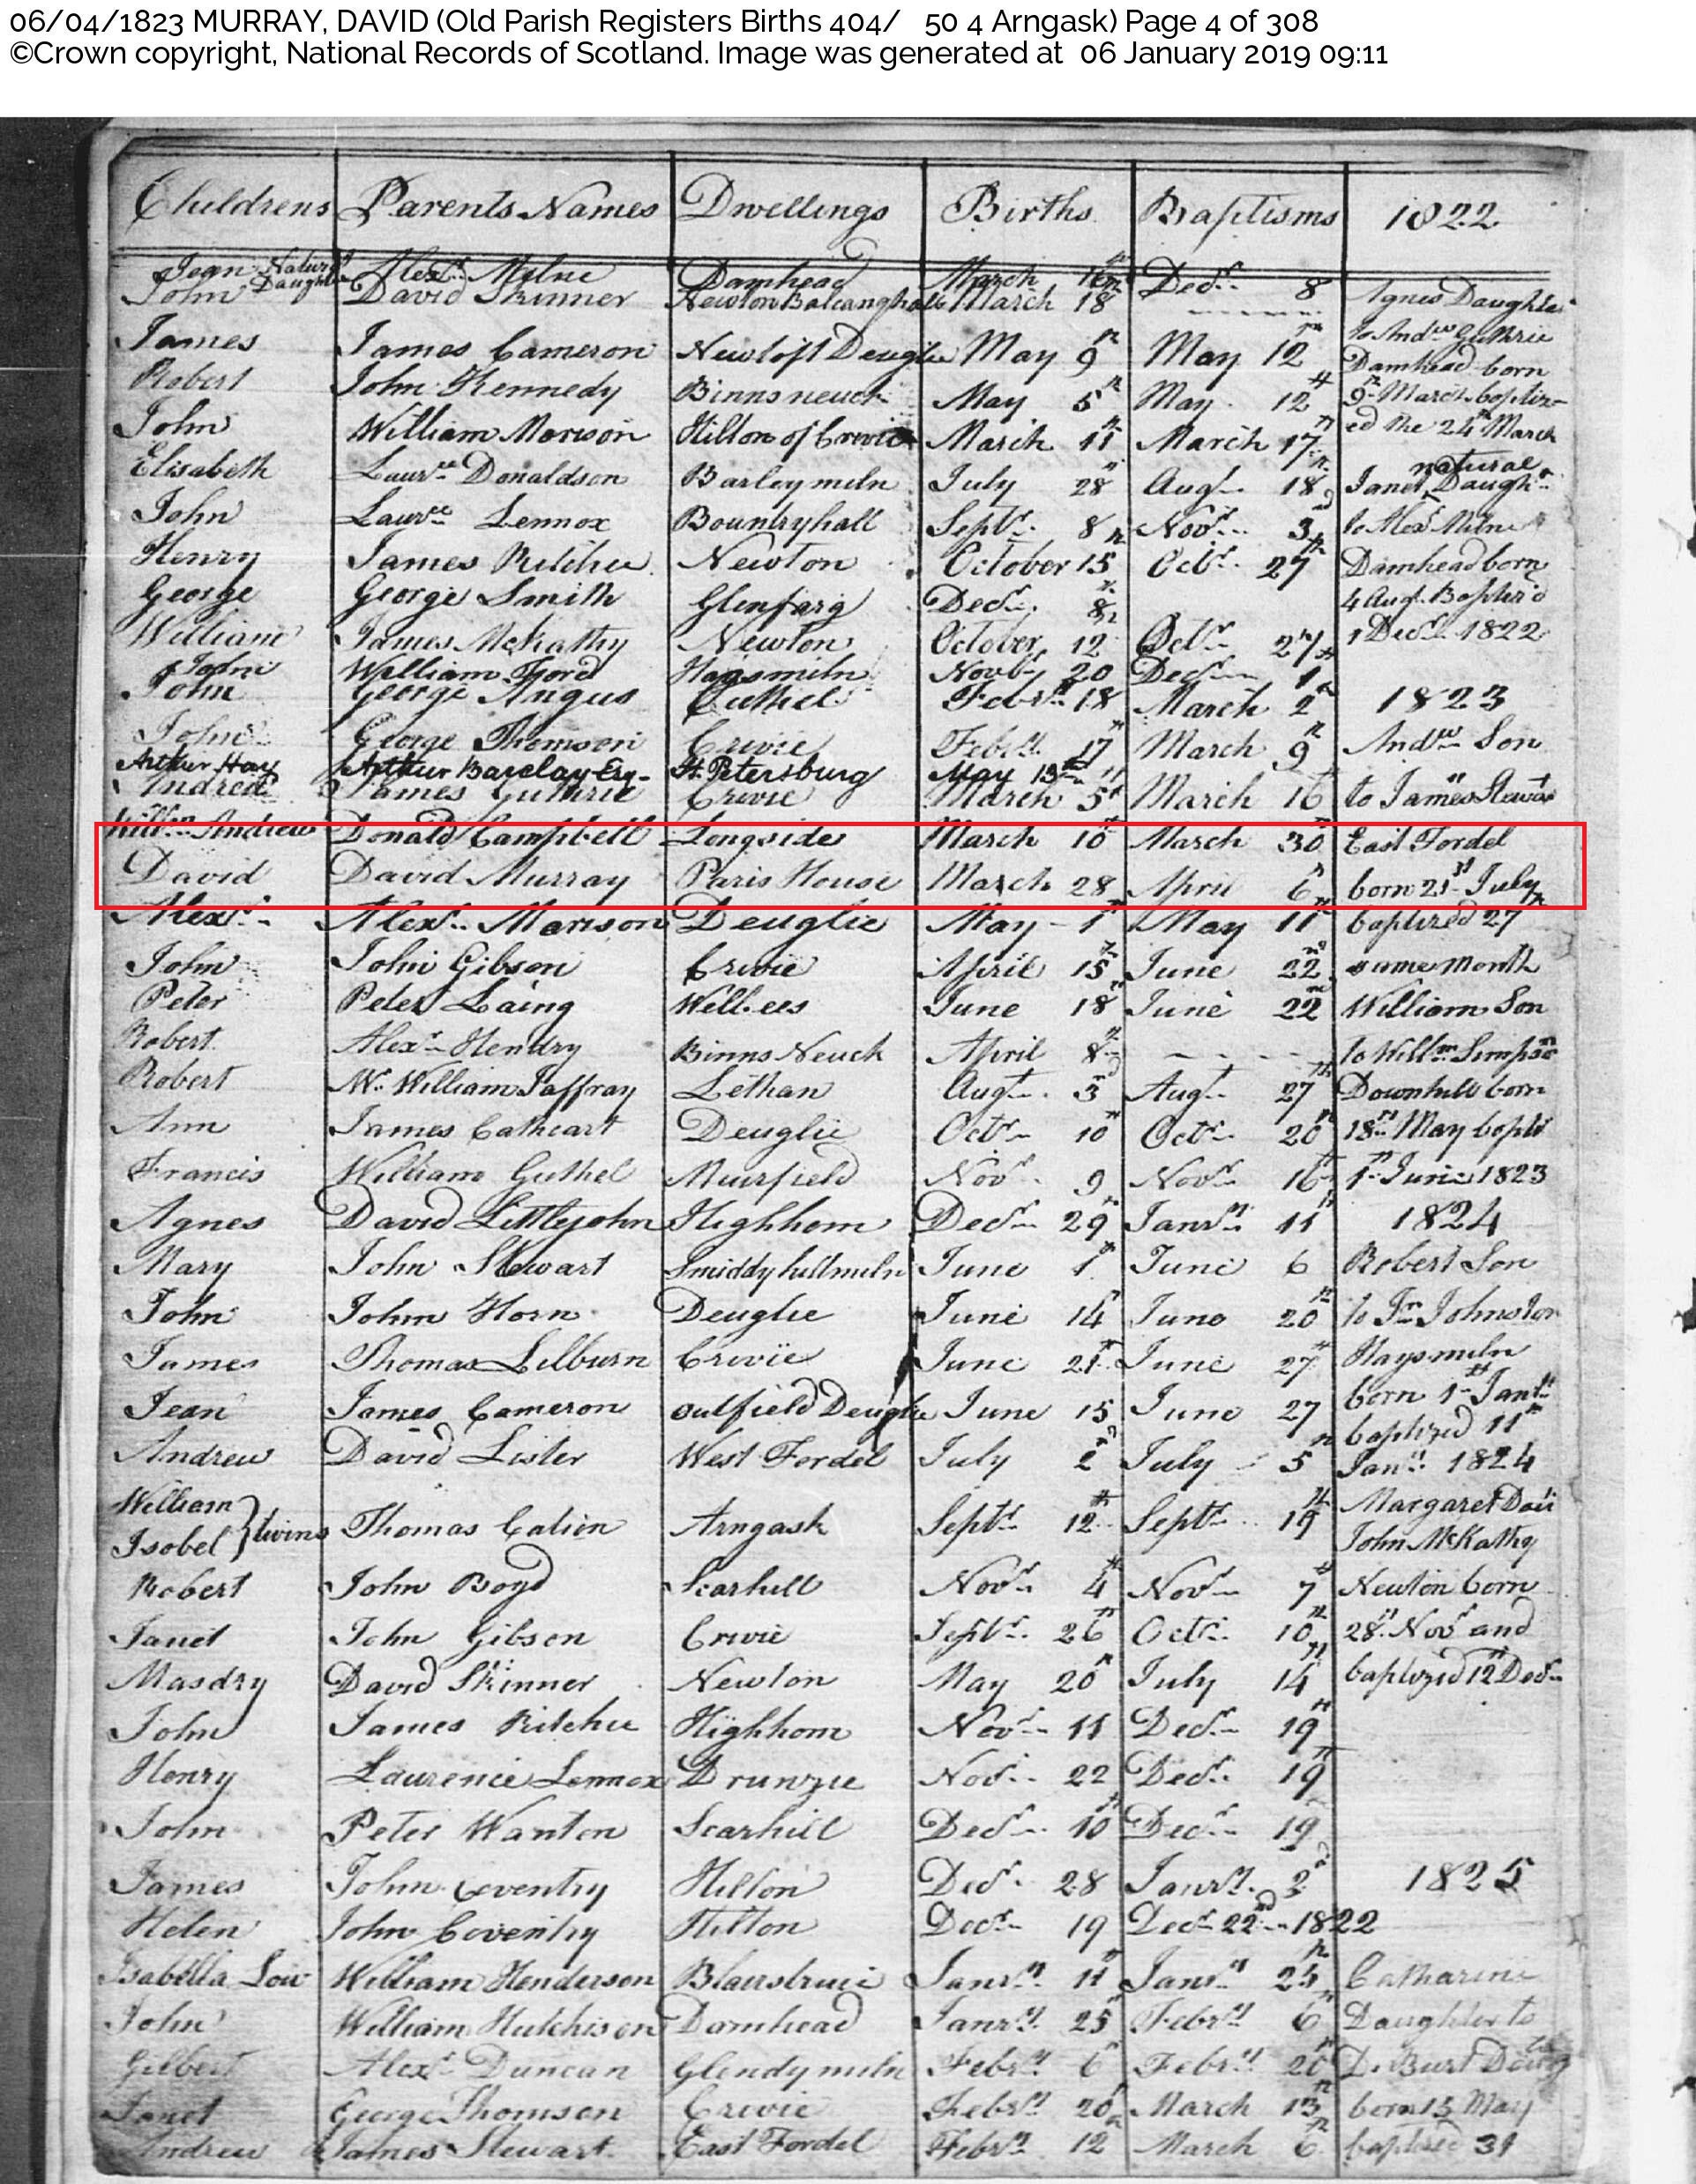 06/04/1823 MURRAY, DAVID (Old Parish Registers Births 404/ 50 4 Arngask) Page 4 of 308
©Crown copyright, National Records of Scotland. Image was generated at 06 January 2019 09:11
Childrens Parents Names Dwellings Births Baptisms 1822
Jean Natural Daughter Alexr Milne Damhead March Decr 8
John David Skinner Newton Balcanqhall March 18 Agnes Daughter
James James Cameron Newloft Deuglie May 9th May 12th to Andw Guthrie
Damhead born
Robert John Kennedy Binnsneuch May 5th May 12th 9th March baptiz-
John William Morison Hilton of Crivie March 11th March 17th ed the 24th March
Elisabeth Laurce Donaldson Barleymiln July 28th Augt 18th Janet natural Daughr
John Laurce Lennox Bountryhall Septr 8th Novr 3d to Alexr Milne
Henry James Ritchie Newton October 15th Octr 27th Damhead born
George George Smith Glenfarg Decr 8th 4 Augt Baptiz'd
William James McKathy Newton October 12th Octr 27th 1 Decr 1822
John William Ford Haysmiln Novbr 20 Decr 1
John George Angus Cuthel Febry 18 March 2d 1823
John George Thomson Crivie Feby 17th March 9th Andw Son
Arthur Hay Arthur Barclay Esq- St. Petersburg May 13th
Andrew James Guthrie Crivie March 5th March 16th to James Stewart
Willm Andrew Donald Campbell Longside March 10 March 30th East Fordel
David David Murray Paris House March 28 April 6th born 21st July
Alexr Alexr Morison Deuglie May 1st May 11th baptized 27th
John John Gibson Crivie April 15th June 22nd same month
Peter Peter Laing Wellees June 18th June 22nd William Son
Robert Alexr Hendry Binns Neuck April 8th to Willm Simpson
Robert Mr. William Jaffray Lethan Augt 3d Augt 27th Downhill born
Ann James Cathcart Deuglie Octr 10th Octr 20th 18th May bapti
Francis William Guthel Muirfield Novr 9 Novr 16th 1st June 1823
Agnes David Littlejohn Highhom Decr 29th Janry 11th 1824
Mary John Stewart Smiddyhillmiln June 1st June 6 Robert Son
John John Horn Deuglie June 14th June 20th to Jn Johnston
James Thomas Lilburn Crivie June 21st June 27th Haysmiln
born 1st Janry
Jean James Cameron outfield Deuglie June 15 June 27 baptized 11th
Andrew David Lister West Fordel July 2d July 5th Janry 1824
William Margaret Dau
Isobel } twins Thomas Calion Arngask Septr 12th Septr 19th John McKathy
Robert John Boyd Scarhill Novr 4th Novr 7th Newton born
Janet John Gibson Crivie Septr 26th Octr 10th 28th Novr and
Masdry David Skinner Newton May 20th July 14th baptized 12th Decr
John James Ritchie Highhom Novr 11 Decr 19th
Henry Laurence Lennox Drunzie Novr 22 Decr 19th
John Peter Wanton Scarhill Decr 10th Decr 19
James John Coventry Hilton Decr 28 Janry 2d 1825
Helen John Coventry Hilton Decr 19 Decr 22nd 1822
Isabella Low William Henderson Blairstruie Janry 11th Janry 25th Catharine
John William Hutchison Damhead Janry 25th Febry 6th Daughter to
Gilbert Alexr Duncan Glendymiln Febry 6th Febry 20th D. Burt
Janet George Thomson Crivie Febry 20th March 13th born 13 May
Andrew James Stewart East Fordel Febry 12 March 6th baptized 31